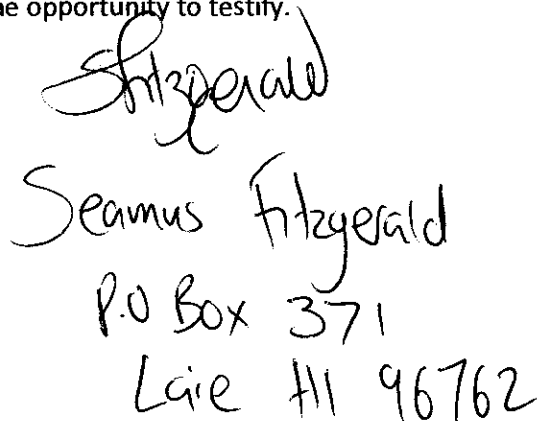 he opportunity to testify.
SFitzgerald
Seamus Fitzgerald
P.O Box 371
Laie HI 96762